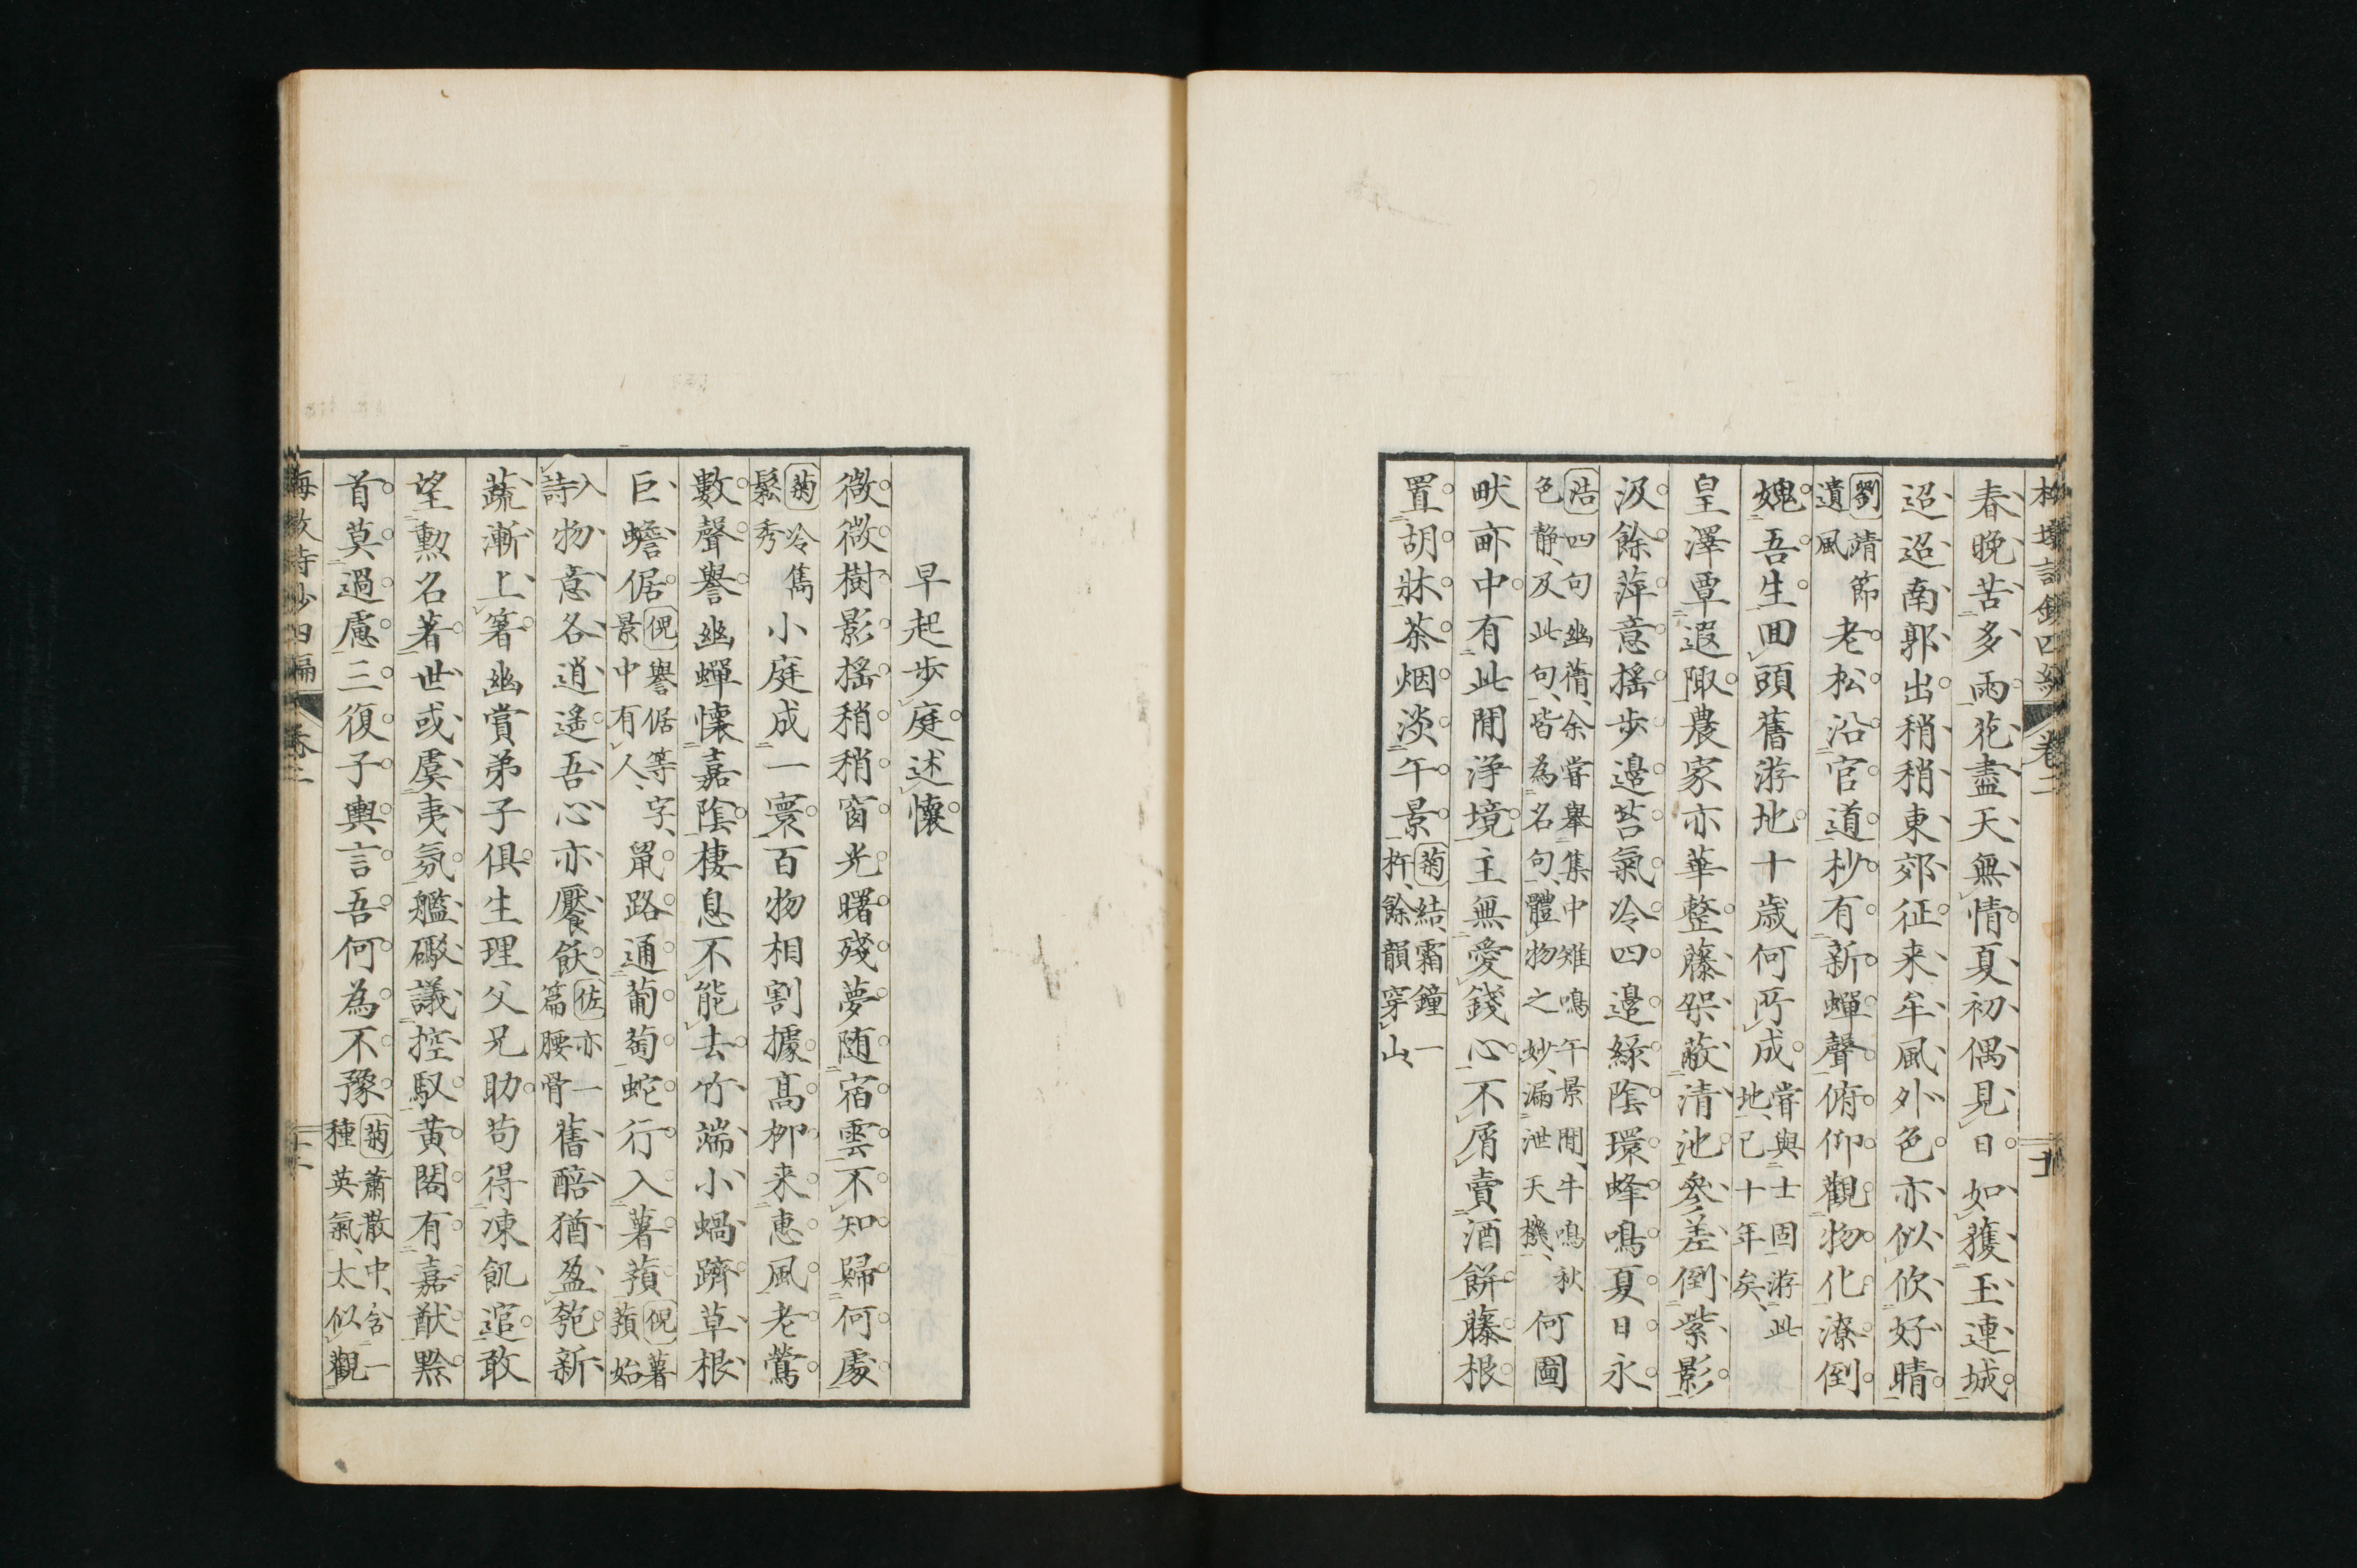 春晚苦多雨花盡天無情夏初偶見日如獲玉連城
迢迢南郭出稍稍東郊征来牟風外色亦似欣好晴
劉靖節遺風老松沿官道杪有新蟬聲俯仰觀物化潦倒
媿吾生回頭舊游地十歳何所成嘗與士固游此地、已十年矣、
皇澤覃遐陬農家亦華整藤架蔽清池參差倒紫影
汲餘萍意搖步邊苔氣冷四邊綠陰環蜂鳴夏日永
浩四句幽蒨、余嘗舉集中雉鳴午景閒、牛鳴秋色静、及此句、皆為名句、體物之妙、漏泄天機、何圖
畎畝中有此閒浄境主無愛錢心不屑賣酒餅藤根
置胡牀茶烟淡午景菊結、霜鐘一杵、餘韻穿山、
早起歩庭述懷
微微樹影搖稍稍窗光曙殘夢随宿雲不知歸何處
菊冷雋鬆秀小庭成一寰百物相割據髙栁来恵風老鶯
數聲譽幽蟬懷嘉陰棲息不能去竹端小蝸躋草根
巨蟾倨倪譽倨等字、景中有人、鼠路通葡萄蛇行入薯蕷倪薯蕷始
入詩物意各逍遙吾心亦饜飫佐亦一篇腰骨舊醅猶盈匏新
蔬漸上箸幽賞弟子俱生理父兄助苟得凍飢逭敢
望勲名著世或虞夷氛艦礮議控馭黄閤有嘉猷黙
首莫過慮三復子輿言吾何為不豫菊蕭散中、含一種英氣、太似觀
卷二